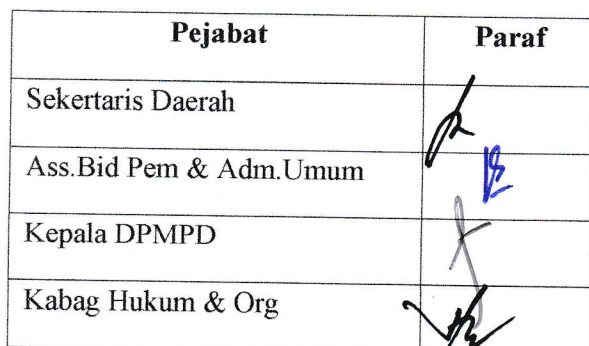 Pejabat Paraf
Sekertaris Daerah
Ass.Bid Pem & Adm.Umum
Kepala DPMPD
Kabag Hukum & Org